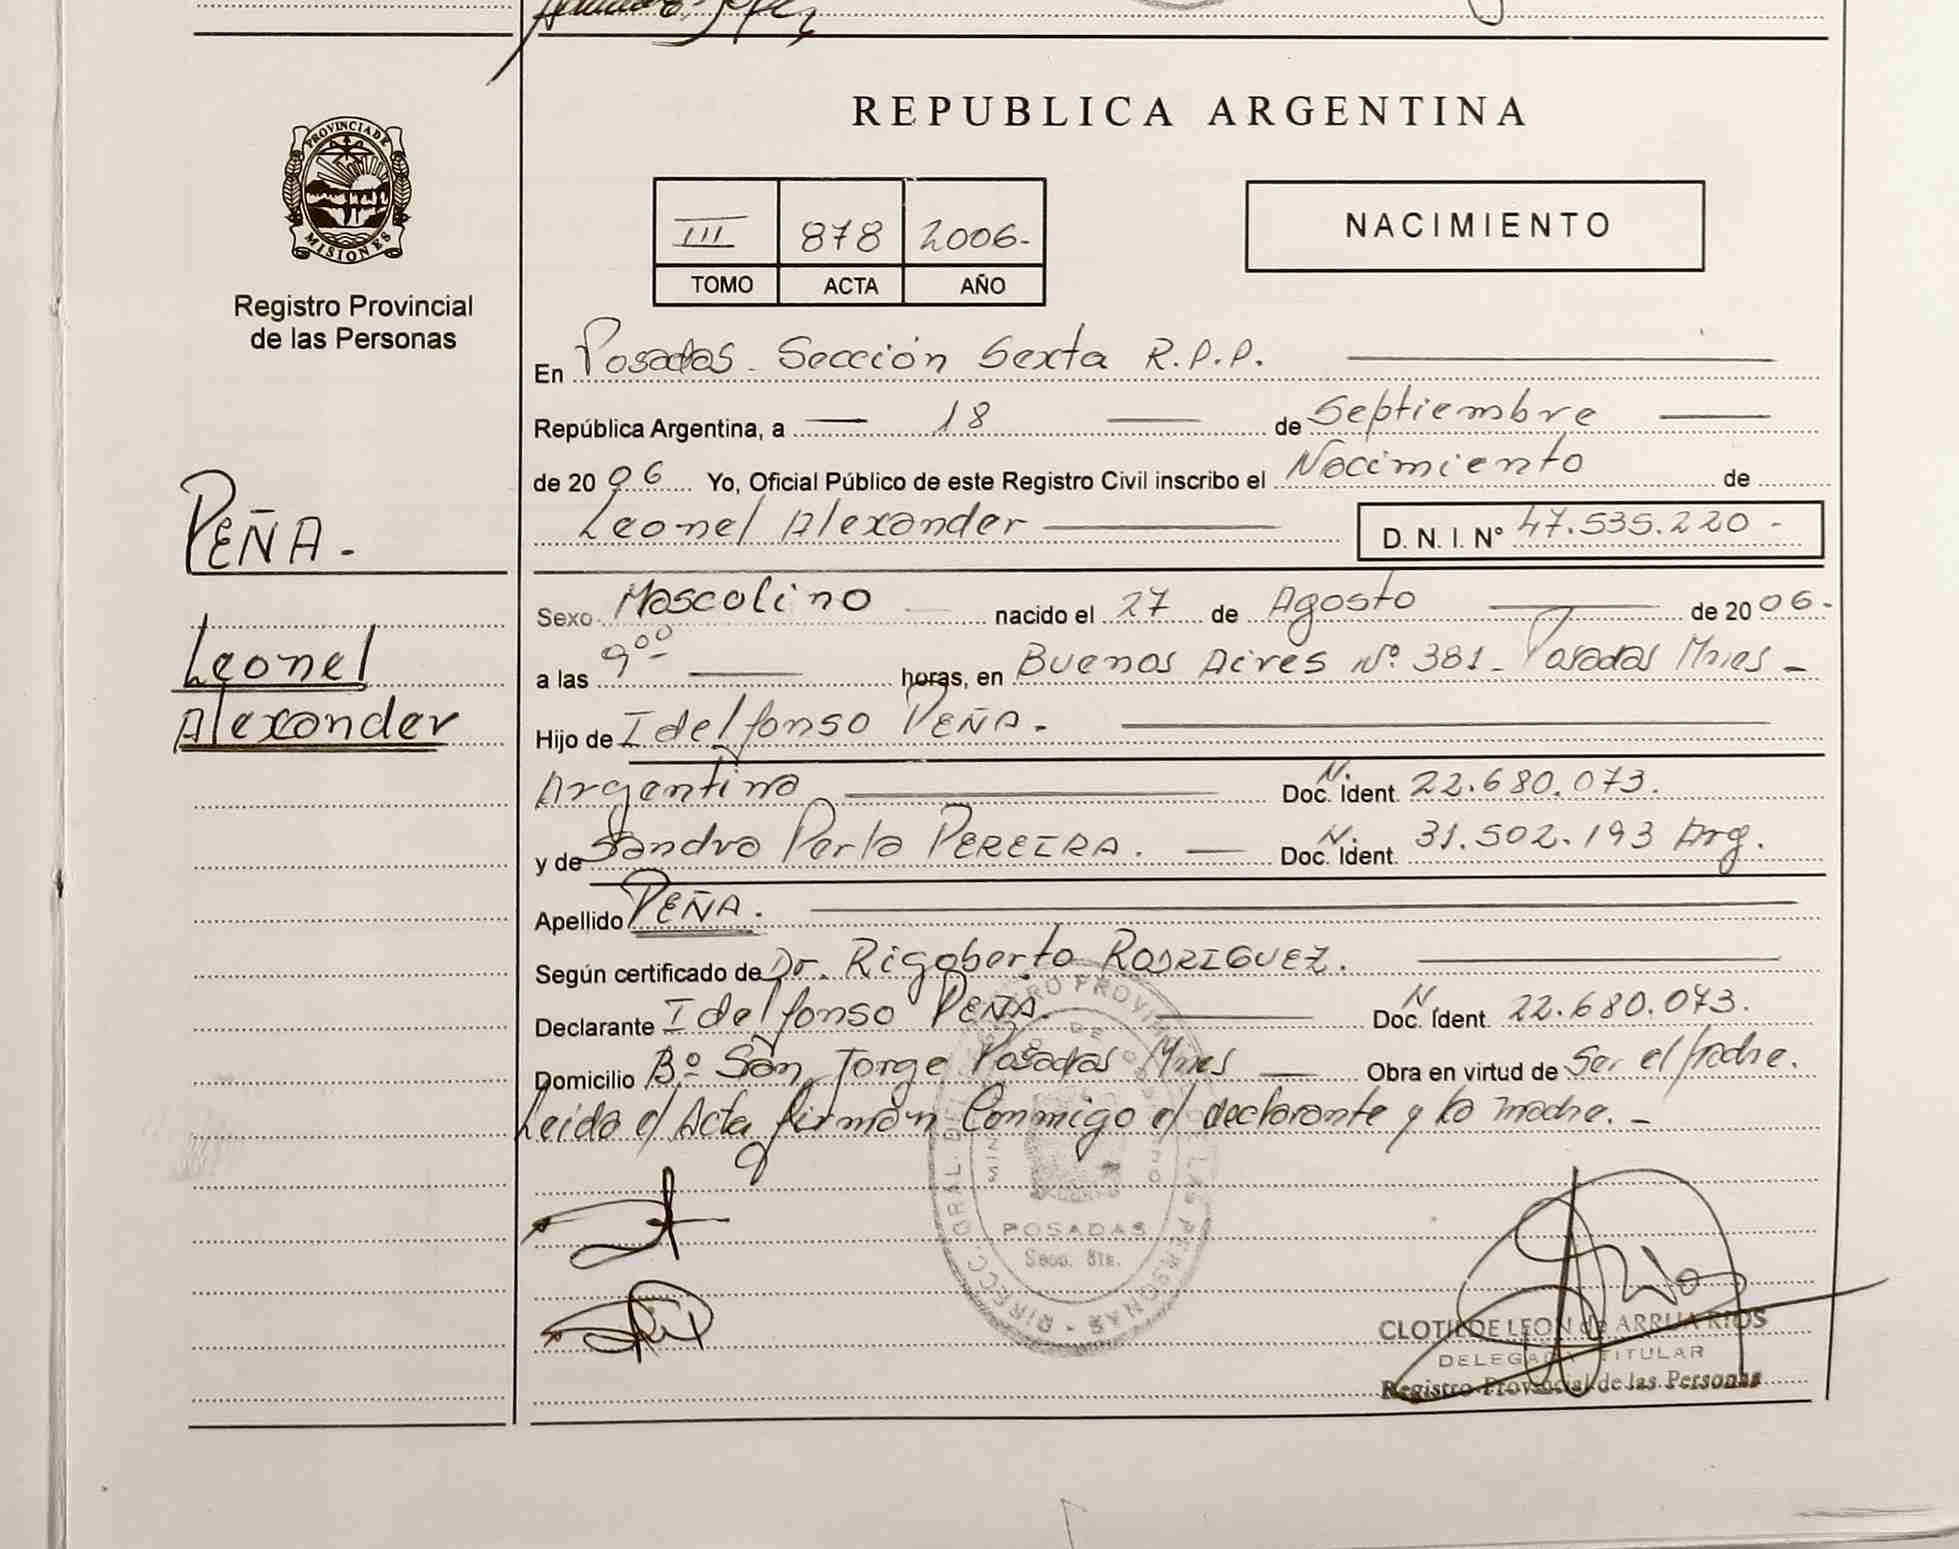 PROVINCIA DE
MISIONES
Registro Provincial
de las Personas
PEÑA.-
Leonel
Alexander
REPUBLICA ARGENTINA
III 878 2006-
TOMO ACTA AÑO
NACIMIENTO
En Posadas - Sección Sexta R.P.P.
República Argentina, a 18 de Septiembre
de 2006 Yo, Oficial Público de este Registro Civil inscribo el Nacimiento de
Leonel Alexander D. N. I. Nº 47.535.220-
Sexo Mascolino nacido el 27 de Agosto de 2006.-
a las 9⁰⁰ horas, en Buenos Aires Nº 381- Posadas Mnes-
Hijo de Idelfonso PEÑA.-
Argentino Doc. N. Ident. 22.680.073.
y de Sandra Perla PEREIRA. Doc. N. Ident. 31.502.193 Arg.
Apellido PEÑA.
Según certificado de Dr. Rigoberto RODRIGUEZ.
Declarante Idelfonso PEÑA. Doc. N Ident. 22.680.073.
Domicilio Bº San Jorge Posadas Mnes Obra en virtud de Ser el padre.
Leida el Acta firman Conmigo el declarante y la madre.-
POSADAS
Secc. 6ta.
CLOTILDE LEON de ARRUA RIOS
DELEGADA TITULAR
Registro Provincial de las Personas